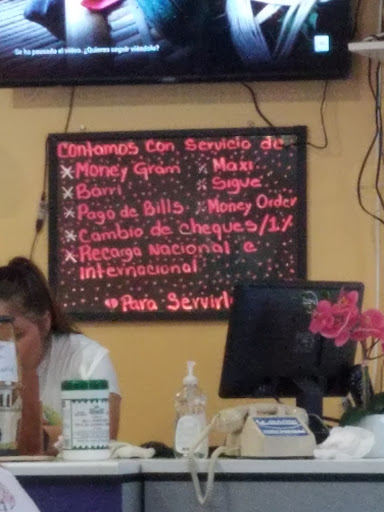 Se ha pausado el video. ¿Quieres seguir viéndolo?
Contamos con servicio de
Money Gram
Maxi
Barri
Sigue
Pago de Bills
Money Order
Cambio de cheques/1%
Recarga Nacional e
Internacional
Para Servirle